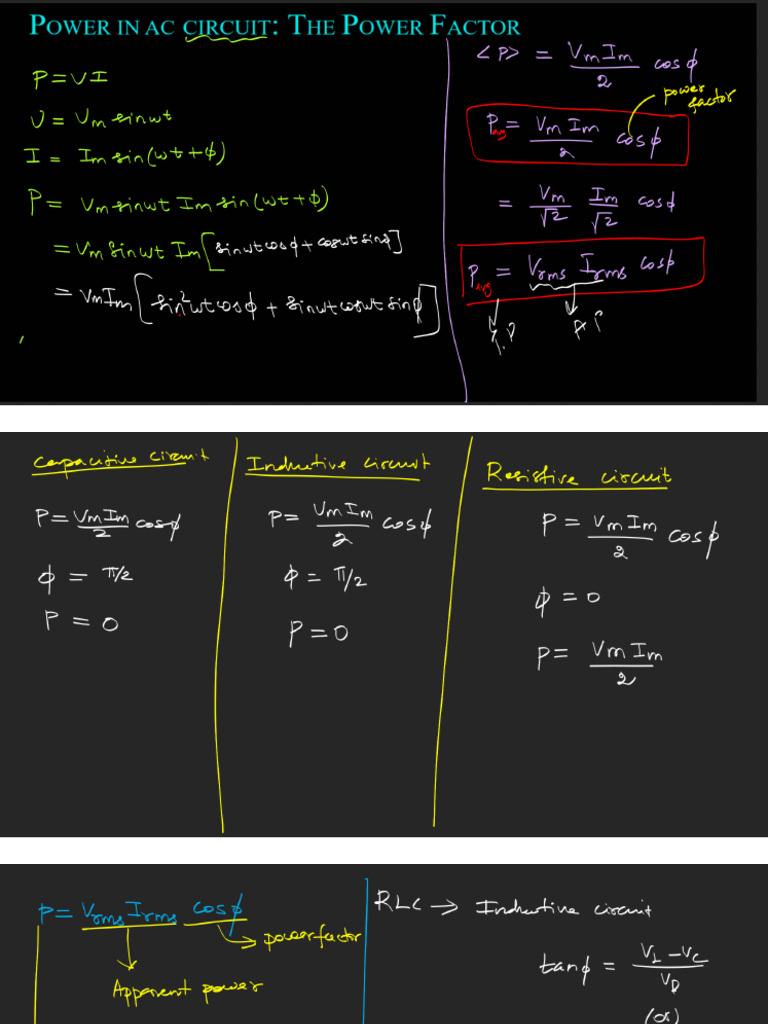 POWER IN AC CIRCUIT: THE POWER FACTOR
P = VI
V = Vm sinωt
I = Im sin(ωt+φ)
P = Vm sinωt Im sin(ωt+φ)
= Vm sinωt Im [sinωt cosφ + cosωt sinφ]
= VmIm [sin²ωt cosφ + sinωt cosωt sinφ]
<P> = VmIm/2 cosφ
power factor
Pavg = VmIm/2 cosφ
= Vm/√2 Im/√2 cosφ
Pavg = Vrms Irms cosφ
T.P
A.P
Capacitive circuit
P = VmIm/2 cosφ
φ = π/2
P = 0
Inductive circuit
P = VmIm/2 cosφ
φ = π/2
P = 0
Resistive circuit
P = VmIm/2 cosφ
φ = 0
P = VmIm/2
P = Vrms Irms cosφ
power factor
Apparent power
RLC → Inductive circuit
tanφ = VL - VC / VR
(or)